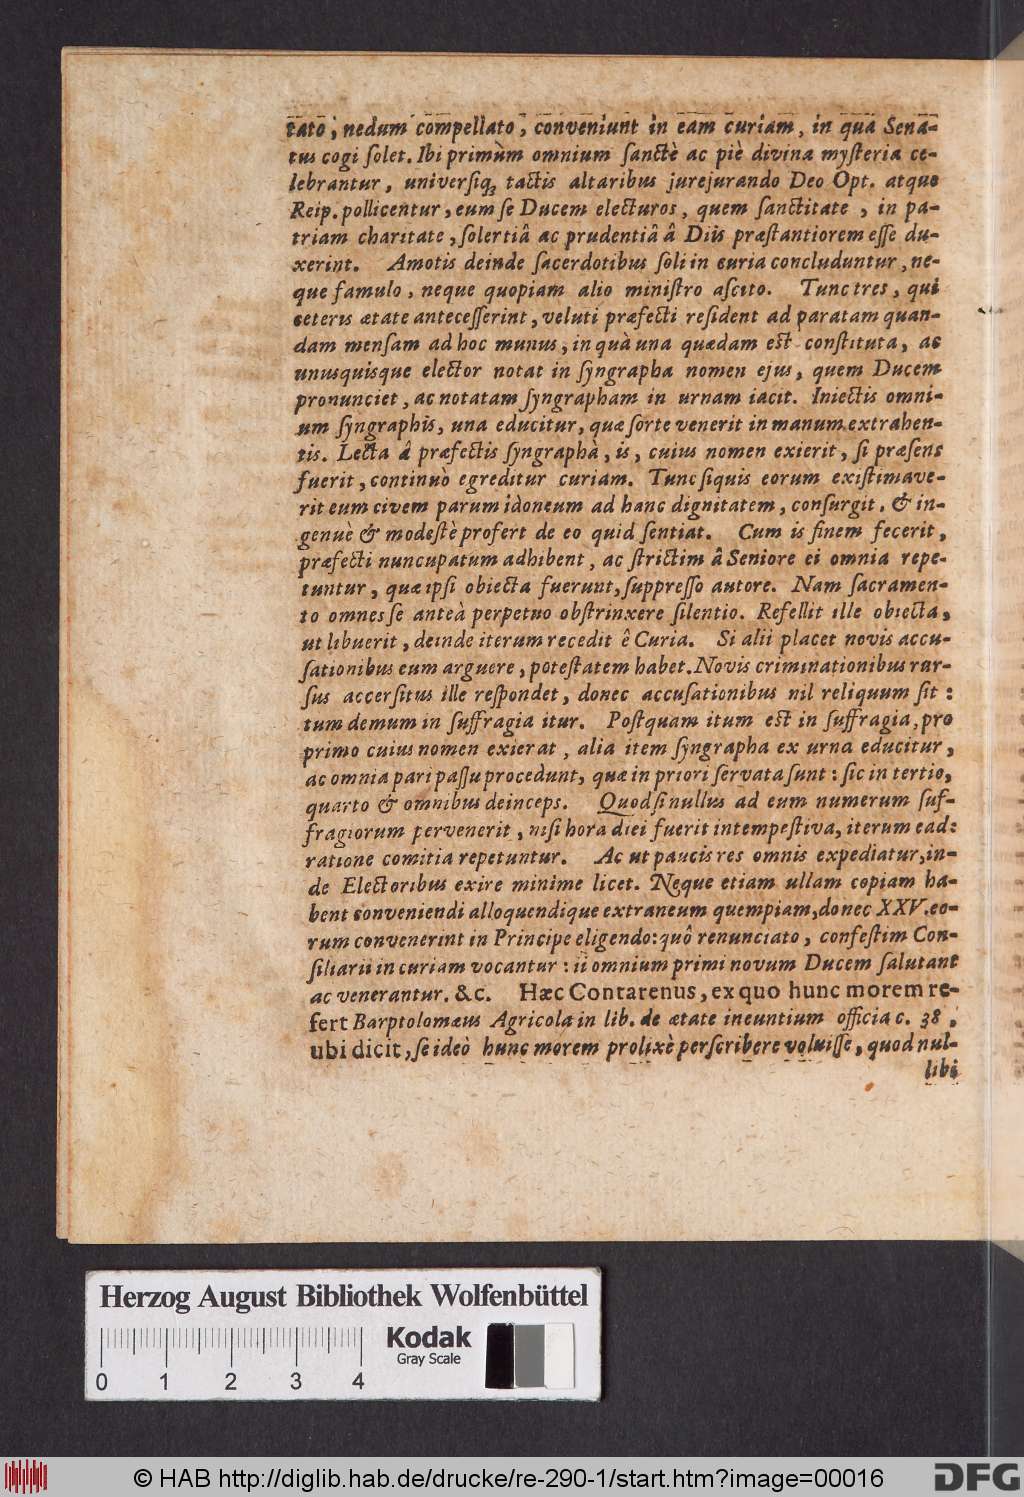 tato, nedum compellato, conveniunt in eam curiam, in quâ Sena-
tus cogi ſolet. Ibi primùm omnium ſanctè ac piè divina myſteria ce-
lebrantur, univerſiq; tactis altaribus jurejurando Deo Opt. atque
Reip. pollicentur, eum ſe Ducem electuros, quem ſanctitate, in pa-
triam charitate, ſolertiâ ac prudentiâ â Diis præſtantiorem eſſe du-
xerint. Amotis deinde ſacerdotibus ſoli in curia concluduntur, ne-
que famulo, neque quopiam alio miniſtro aſcito. Tunc tres, qui
ceteris ætate anteceſſerint, veluti præfecti reſident ad paratam quan-
dam menſam ad hoc munus, in quà una quædam eſt conſtituta, ac
unusquisque elector notat in ſyngrapha nomen ejus, quem Ducem
pronunciet, ac notatam ſyngrapham in urnam iacit. Iniectis omni-
um ſyngraphis, una educitur, quæ ſorte venerit in manum extrahen-
tis. Lecta â præfectis ſyngraphâ, is, cuius nomen exierit, ſi præſens
fuerit, continuò egreditur curiam. Tunc ſiquis eorum exiſtimave-
rit eum civem parum idoneum ad hanc dignitatem, conſurgit, & in-
genuè & modeſtè profert de eo quid ſentiat. Cum is finem fecerit,
præfecti nuncupatum adhibent, ac ſtrictim â Seniore ei omnia repe-
tuntur, quæ ipſi obiecta fuerunt, ſuppreſſo autore. Nam ſacramen-
to omnes ſe anteà perpetuo obſtrinxere ſilentio. Refellit ille obiecta,
ut libuerit, deinde iterum recedit ê Curia. Si alii placet novis accu-
ſationibus eum arguere, poteſtatem habet. Novis criminationibus rur-
ſus accerſitus ille reſpondet, donec accuſationibus nil reliquum ſit:
tum demum in ſuffragia itur. Poſtquam itum eſt in ſuffragia, pro
primo cuius nomen exierat, alia item ſyngrapha ex urna educitur,
ac omnia pari paſſu procedunt, quæ in priori ſervata ſunt: ſic in tertio,
quarto & omnibus deinceps. Quod ſi nullus ad eum numerum ſuf-
fragiorum pervenerit, niſi hora diei fuerit intempeſtiva, iterum ead:
ratione comitia repetuntur. Ac ut paucis res omnis expediatur, in-
de Electoribus exire minime licet. Neque etiam ullam copiam ha-
bent conveniendi alloquendique extraneum quempiam, donec XXV. eo-
rum convenerint in Principe eligendo: quô renunciato, confeſtim Con-
ſiliarii in curiam vocantur: ii omnium primi novum Ducem ſalutant
ac venerantur. &c. Hæc Contarenus, ex quo hunc morem re-
fert Barptolomæus Agricola in lib. de ætate ineuntium officia c. 38,
ubi dicit, ſe ideò hunc morem prolixè perſcribere voluiſſe, quod nul-
libi
Herzog August Bibliothek Wolfenbüttel
Kodak
Gray Scale
0 1 2 3 4
© HAB http://diglib.hab.de/drucke/re-290-1/start.htm?image=00016
DFG